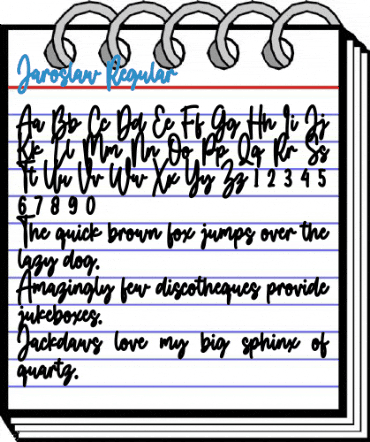 Jaroslaw Regular
Aa Bb Cc Dd Ee Ff Gg Hh Ii Jj
Kk Ll Mm Nn Oo Pp Qq Rr Ss
Tt Uu Vv Ww Xx Yy Zz 1 2 3 4 5
6 7 8 9 0
The quick brown fox jumps over the
lazy dog.
Amazingly few discotheques provide
jukeboxes.
Jackdaws love my big sphinx of
quartz.